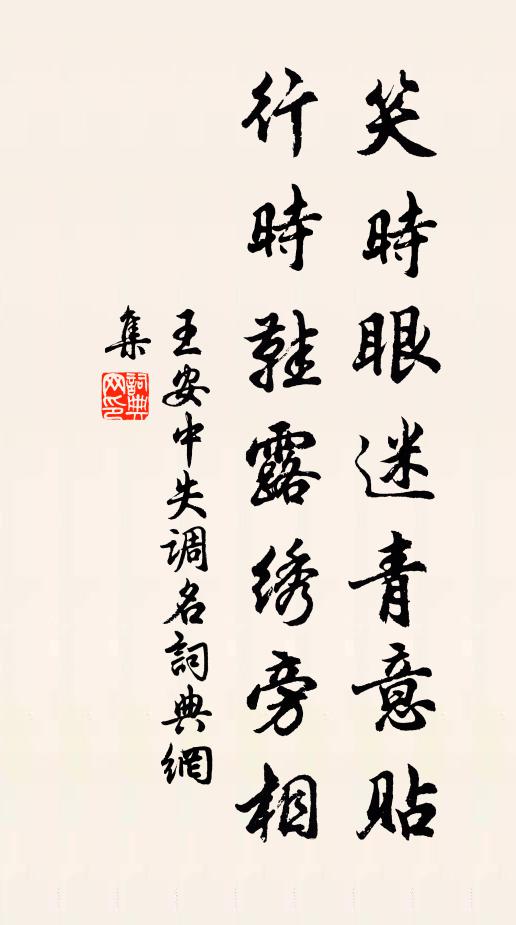 笑時眼迷青意貼
行時鞋露绣旁相
王安中失调名詞典網
集
詞典网印